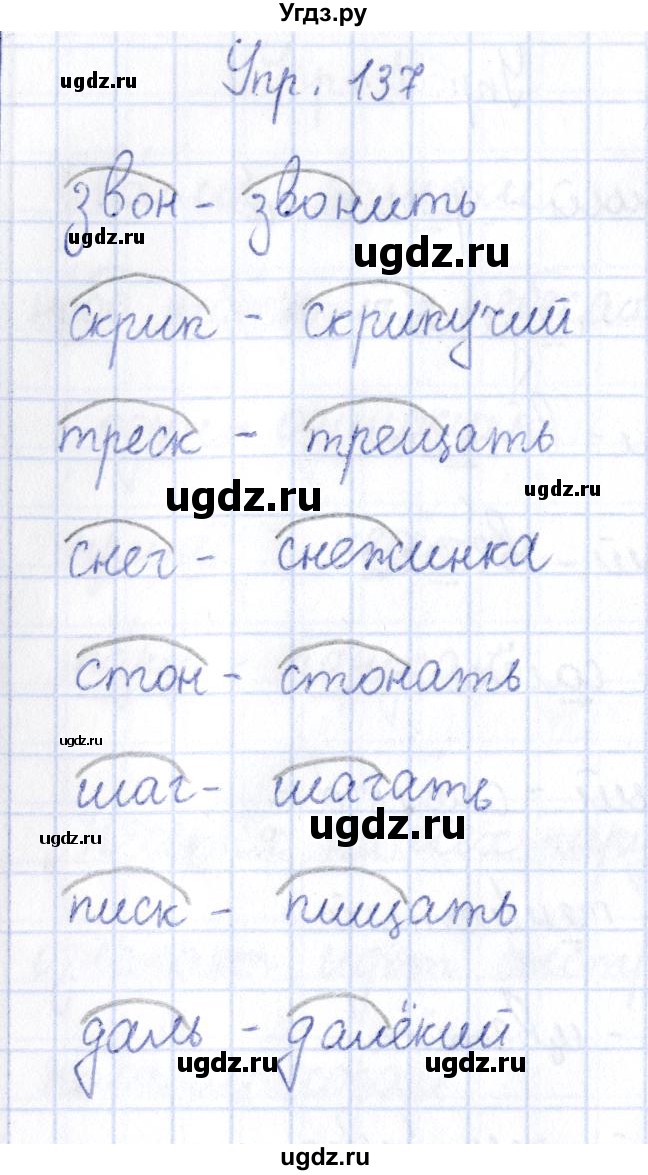 Угдз.ру
ugdz.ru
Упр. 137
звон - звонить
ugdz.ru
ugdz.ru
скрип - скрипучий
треск - трещать
ugdz.ru
ugdz.ru
снег - снежинка
стон - стонать
ugdz.ru
шаг - шагать
ugdz.ru
ugdz.ru
писк - пищать
даль - далёкий
ugdz.ru
ugdz.ru
ugdz.ru